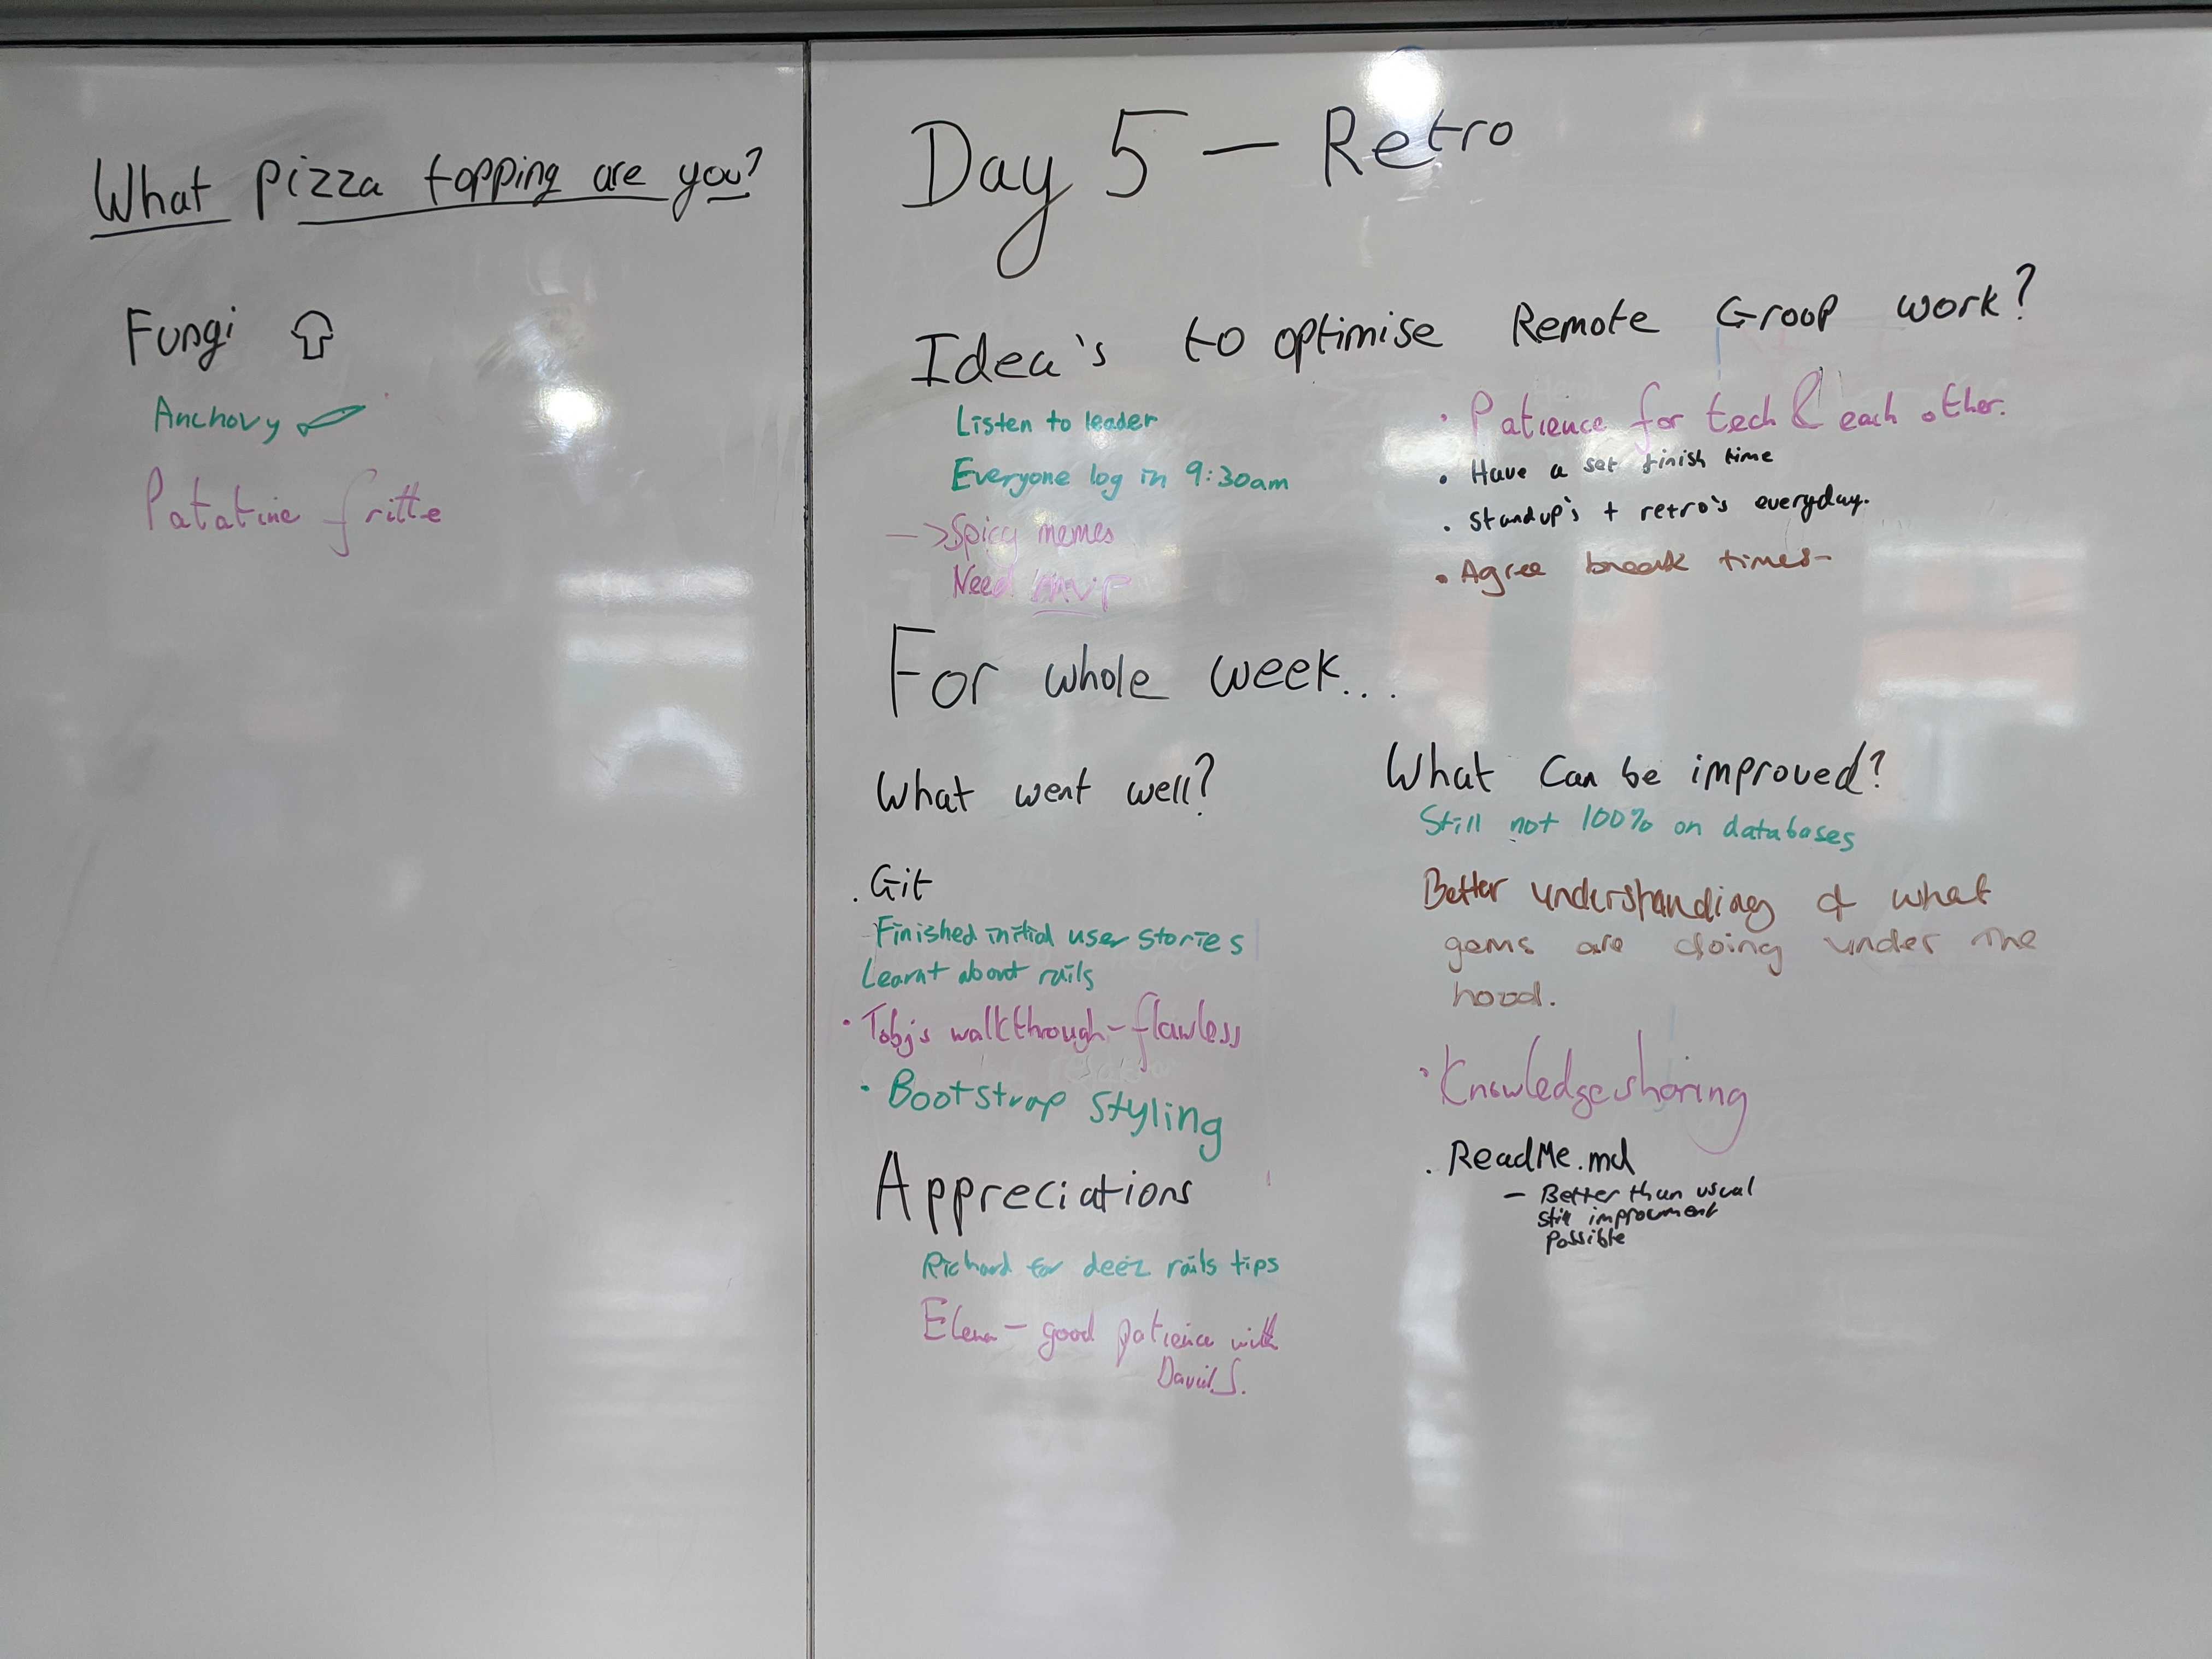 What pizza topping are you?
Fungi
Anchovy
Patatine fritte
Day 5 - Retro
Idea's to optimise Remote Group work?
Listen to leader
Everyone log in 9:30am
-> Spicy memes
Need
• Patience for tech & each other.
• Have a set finish time
• Standup's + retro's everyday.
• Agree break times-
For whole week...
What went well?
. Git
Finished initial user stories
Learnt about rails
• Toby's walkthrough - flawless
• Bootstrap styling
Appreciations
Richard for deez rails tips
Elena - good patience with
David S.
What Can be improved?
Still not 100% on databases
Better understanding of what
gems are doing under the
hood.
• Knowledge sharing
. ReadMe.md
- Better than usual
still improvment
possible